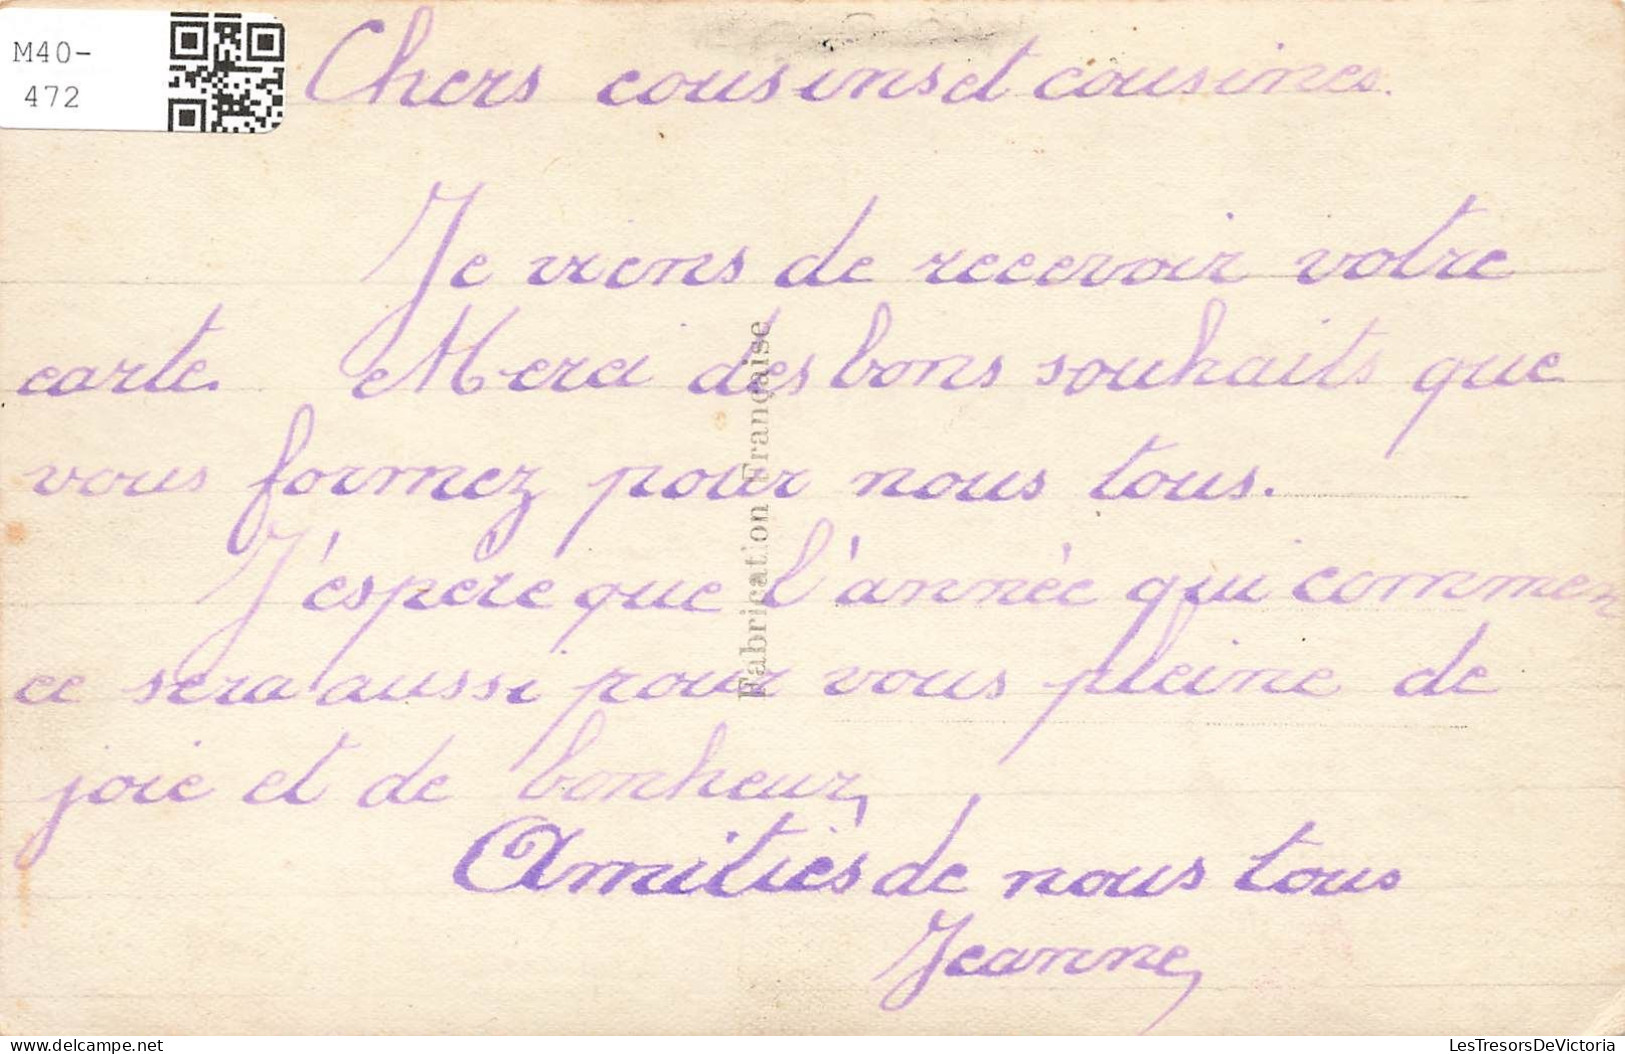 M40-
472
Chers cousins et cousines.
Je viens de recevoir votre
carte. Merci des bons souhaits que
vous formez pour nous tous.
J'espère que l'année qui commen
ce sera aussi pour vous pleine de
joie et de bonheur,
Amitiés de nous tous
Jeanne,
Fabrication Française
delcampe.net
LesTresorsDeVictoria